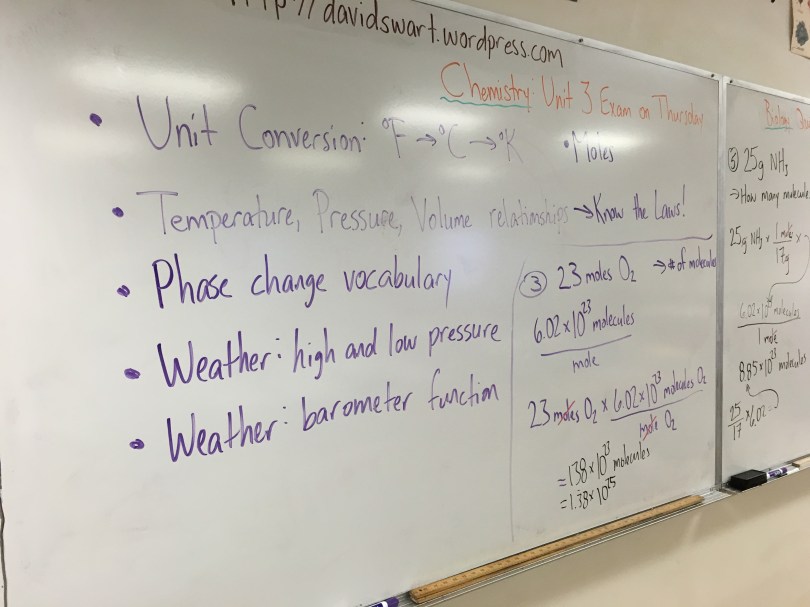 http://davidswart.wordpress.com
Chemistry: Unit 3 Exam on Thursday
• Unit Conversion: °F → °C → °K • Moles
• Temperature, Pressure, Volume relationships → Know the Laws!
• Phase change vocabulary
• Weather: high and low pressure
• Weather: barometer function
③ 23 moles O₂ → # of molecules
6.02 x 10²³ molecules
mole
23 moles O₂ x 6.02 x 10²³ molecules O₂
mole O₂
= 138 x 10²³ molecules
= 1.38 x 10²⁵
Biology
③ 25g NH₃
→ How many molecule
25g NH₃ x 1 mole x
17g
6.02 x 10²³ molecules
1 mole
8.85 x 10²³ molecules
25 x 6.02
17